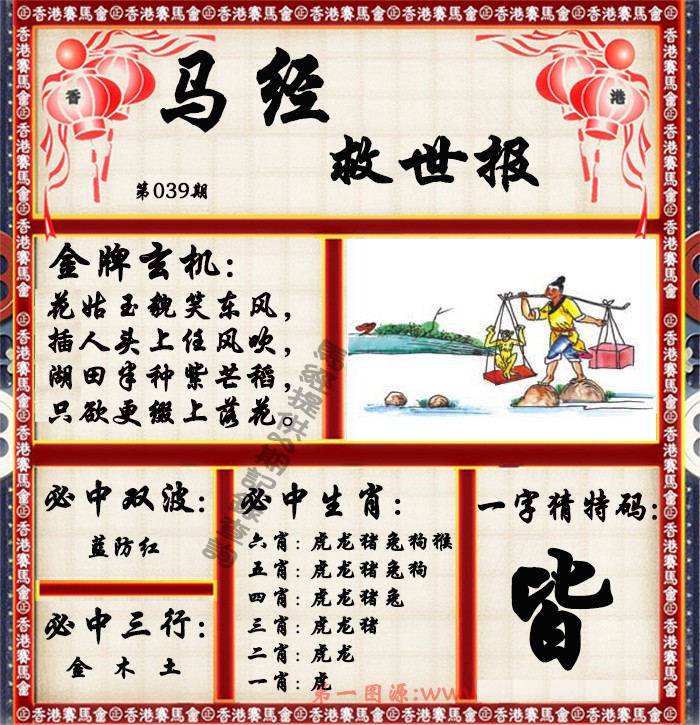 香港賽馬會
香 港
马经
救世报
第039期
金牌玄机：
花姑玉貌笑东风，
插人头上任风吹，
湖田半种紫芒稻，
只欲更缀上落花。
必中双波：
蓝防红
必中三行：
金 木 土
必中生肖：
六肖：虎龙猪兔狗猴
五肖：虎龙猪兔狗
四肖：虎龙猪兔
三肖：虎龙猪
二肖：虎龙
一肖：虎
一字猜特码：
皆
第一图源:www